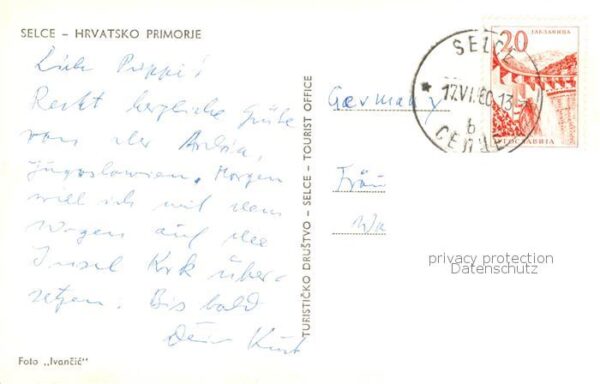 SELCE – HRVATSKO PRIMORJE
Foto „Ivančić"
TURISTIČKO DRUŠTVO – SELCE – TOURIST OFFICE
Recht herzliche Grüße
von der Adria,
Jugoslawien. Morgen
will ich mit dem
Wagen auf die
Insel Krk über-
setzen. Bis bald
Dein Kurt
Germany
Frau
Wa
privacy protection
Datenschutz
SELCE
17.VI.60.13
b
СЕЛЦЕ
20
ЈАБЛАНИЦА
ЈУГОСЛАВИЈА